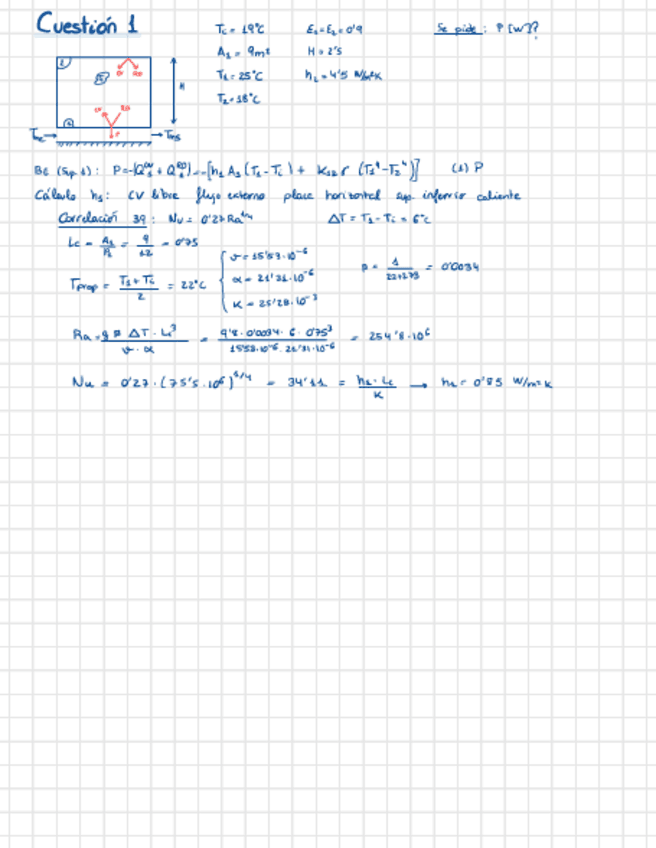 Cuestión 1
Tc = 19°C E1=E2=0'9 Se pide: P [W]??
A1 = 9m² H=2'5
T1=25°C h2=4'5 W/m²K
T2=18°C
H
BE (Sup. 1): P=-[Q1^CV + Q1^RD]=-[h1 A1 (T1-Ti) + K12 σ (T1⁴-T2⁴)] (1) P
Cálculo h1: CV libre flujo externo placa horizontal sup. inferior caliente
Correlación 39: Nu = 0'27Ra^1/4 ΔT = T1-Ti = 6°C
Lc = A1/P1 = 9/12 = 0'75
Tprop = T1+Ti/2 = 22°C
ν=15'53·10⁻⁶
α = 21'31·10⁻⁶
K = 25'28·10⁻³
β = 1/22+273 = 0'0034
Ra = g β ΔT·Lc³/ν·α = 9'8·0'0034·6·0'75³/15'53·10⁻⁶·21'31·10⁻⁶ = 254'8·10⁶
Nu = 0'27·(75'5·10⁶)^1/4 = 34'11 = h1·Lc/K → h1= 0'85 W/m²K